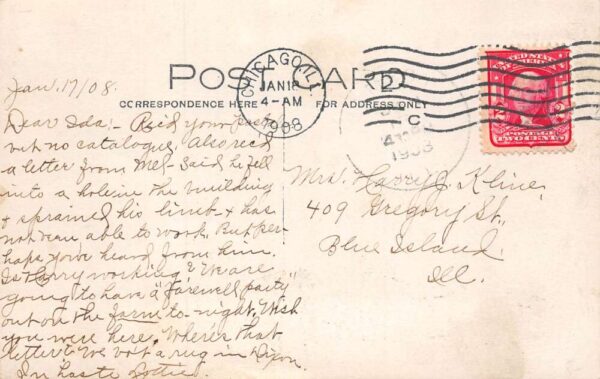 POST CARD
CORRESPONDENCE HERE
FOR ADDRESS ONLY
CHICAGO, ILL.
JAN 18
4-AM
1908
2
C
1908
UNITED STATES
OF AMERICA
POSTAGE
TWO CENTS
Jan. 17/08.
Dear Ida:- Rec'd your
but no catalogue. Also rec'd
a letter from Mel- Said he fell
into a hole in the building
& sprained his limb & has
not been able to work. But per-
haps you've heard from him.
Is Harry working? We are
going to have a "farewell party"
out on the farm to-night. Wish
you were here. Where's that
letter? We bot a rug in Dixon.
In haste Lottie.
Mrs. Harry J. Kline,
409 Gregory St.,
Blue Island
Ill.